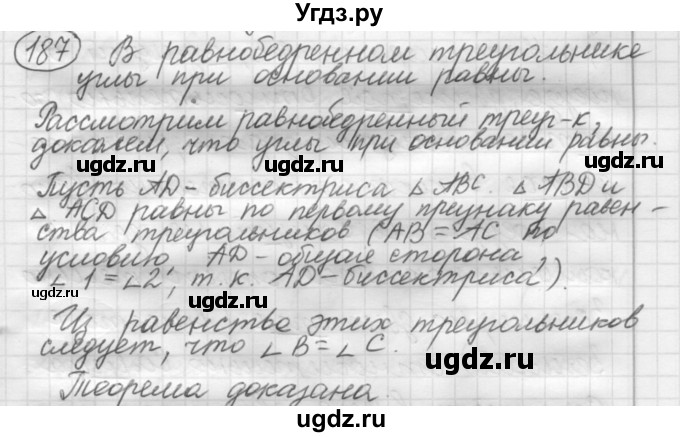 Угдз.ру
187 В равнобедренном треугольнике
углы при основании равны.
Рассмотрим равнобедренный треуг-к,
докажем, что углы при основании равны.
ugdz.ru ugdz.ru
Пусть AD - биссектриса △ ABC. △ ABD и
△ ACD равны по первому признаку равен-
ства треугольников (AB = AC по
условию, AD - общая сторона,
∠1 = ∠2, т. к. AD - биссектриса).
ugdz.ru ugdz.ru ugdz.ru
Из равенства этих треугольников
следует, что ∠B = ∠C.
ugdz.ru ugdz.ru
Теорема доказана.
ugdz.ru